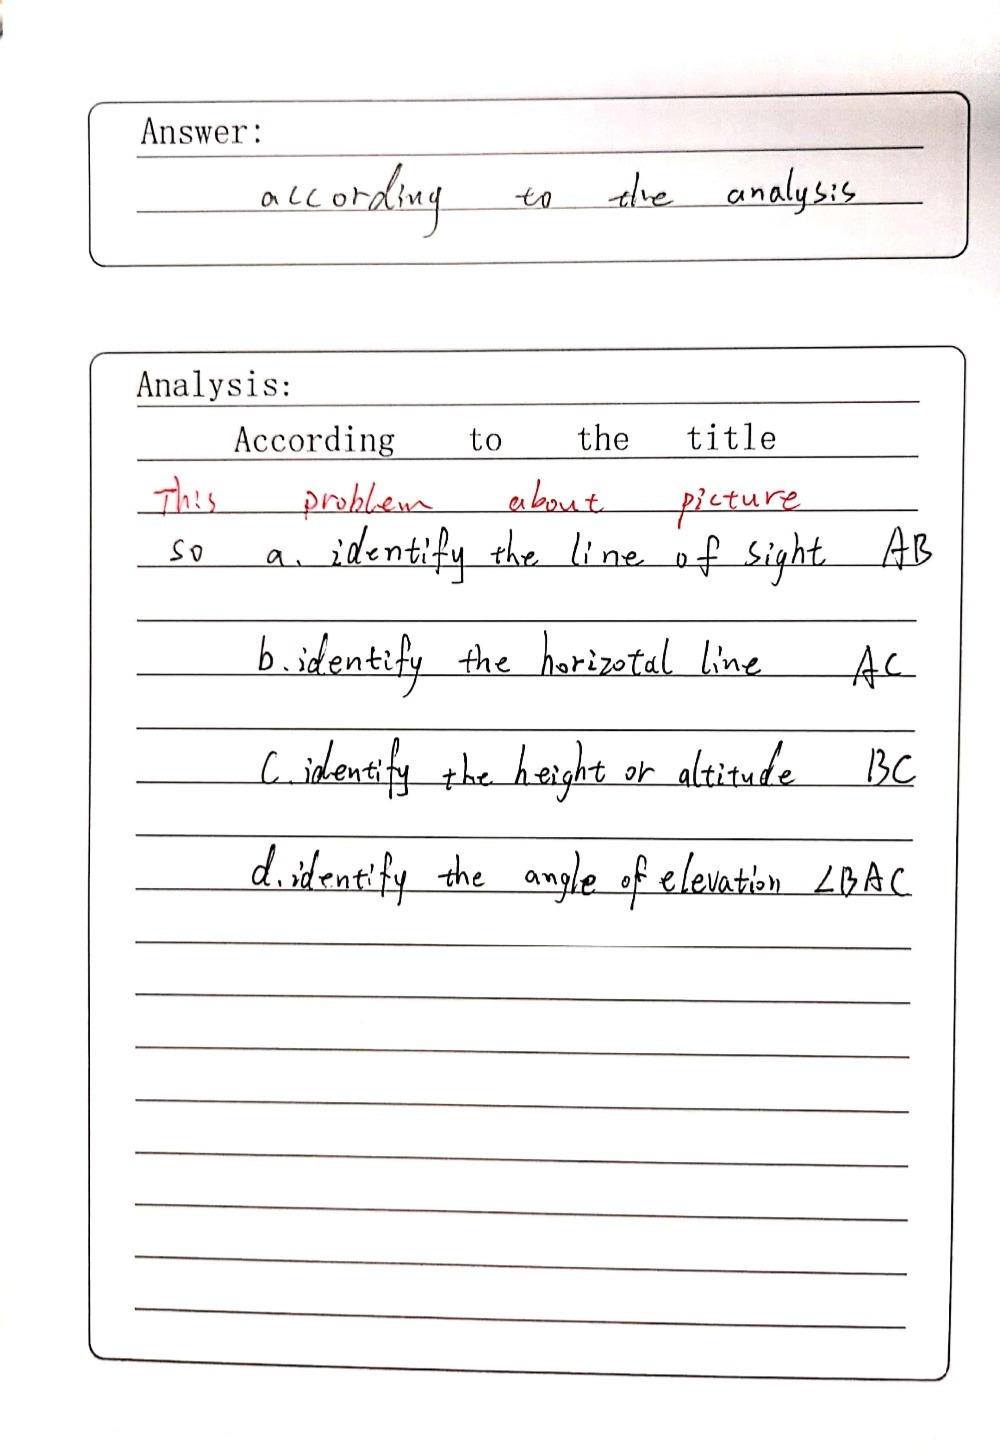 Answer:
according to the analysis
Analysis:
According to the title
This problem about picture
so a. identify the line of sight AB
b. identify the horizotal line AC
C. identify the height or altitude BC
d. identify the angle of elevation ∠BAC